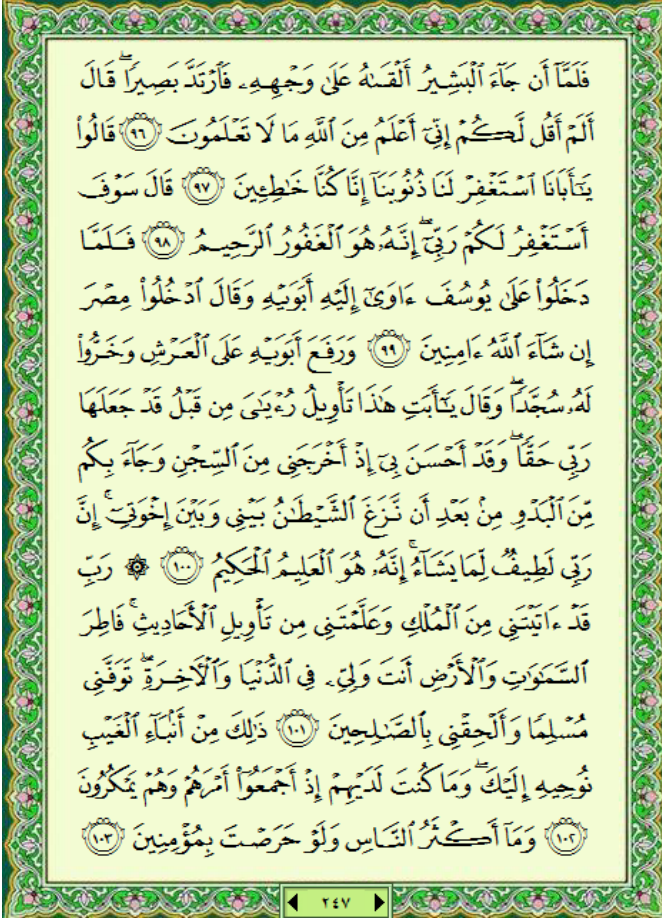 فَلَمَّآ أَن جَآءَ ٱلْبَشِيرُ أَلْقَىٰهُ عَلَىٰ وَجْهِهِۦ فَٱرْتَدَّ بَصِيرًا ۖ قَالَ
أَلَمْ أَقُل لَّكُمْ إِنِّىٓ أَعْلَمُ مِنَ ٱللَّهِ مَا لَا تَعْلَمُونَ ٩٦ قَالُوا۟
يَـٰٓأَبَانَا ٱسْتَغْفِرْ لَنَا ذُنُوبَنَآ إِنَّا كُنَّا خَـٰطِـِٔينَ ٩٧ قَالَ سَوْفَ
أَسْتَغْفِرُ لَكُمْ رَبِّىٓ ۖ إِنَّهُۥ هُوَ ٱلْغَفُورُ ٱلرَّحِيمُ ٩٨ فَلَمَّا
دَخَلُوا۟ عَلَىٰ يُوسُفَ ءَاوَىٰٓ إِلَيْهِ أَبَوَيْهِ وَقَالَ ٱدْخُلُوا۟ مِصْرَ
إِن شَآءَ ٱللَّهُ ءَامِنِينَ ٩٩ وَرَفَعَ أَبَوَيْهِ عَلَى ٱلْعَرْشِ وَخَرُّوا۟
لَهُۥ سُجَّدًا ۖ وَقَالَ يَـٰٓأَبَتِ هَـٰذَا تَأْوِيلُ رُءْيَـٰىَ مِن قَبْلُ قَدْ جَعَلَهَا
رَبِّى حَقًّا ۖ وَقَدْ أَحْسَنَ بِىٓ إِذْ أَخْرَجَنِى مِنَ ٱلسِّجْنِ وَجَآءَ بِكُم
مِّنَ ٱلْبَدْوِ مِنۢ بَعْدِ أَن نَّزَغَ ٱلشَّيْطَـٰنُ بَيْنِى وَبَيْنَ إِخْوَتِىٓ ۚ إِنَّ
رَبِّى لَطِيفٌ لِّمَا يَشَآءُ ۚ إِنَّهُۥ هُوَ ٱلْعَلِيمُ ٱلْحَكِيمُ ١٠٠ ۞ رَبِّ
قَدْ ءَاتَيْتَنِى مِنَ ٱلْمُلْكِ وَعَلَّمْتَنِى مِن تَأْوِيلِ ٱلْأَحَادِيثِ ۚ فَاطِرَ
ٱلسَّمَـٰوَٰتِ وَٱلْأَرْضِ أَنتَ وَلِىِّۦ فِى ٱلدُّنْيَا وَٱلْـَٔاخِرَةِ ۖ تَوَفَّنِى
مُسْلِمًا وَأَلْحِقْنِى بِٱلصَّـٰلِحِينَ ١٠١ ذَٰلِكَ مِنْ أَنۢبَآءِ ٱلْغَيْبِ
نُوحِيهِ إِلَيْكَ ۖ وَمَا كُنتَ لَدَيْهِمْ إِذْ أَجْمَعُوٓا۟ أَمْرَهُمْ وَهُمْ يَمْكُرُونَ
١٠٢ وَمَآ أَكْثَرُ ٱلنَّاسِ وَلَوْ حَرَصْتَ بِمُؤْمِنِينَ ١٠٣
٢٤٧